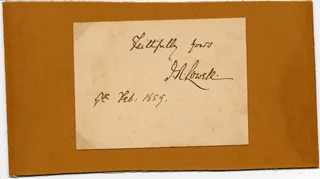 Faithfully yours
J. R. Lowell.
9th Feb: 1889.